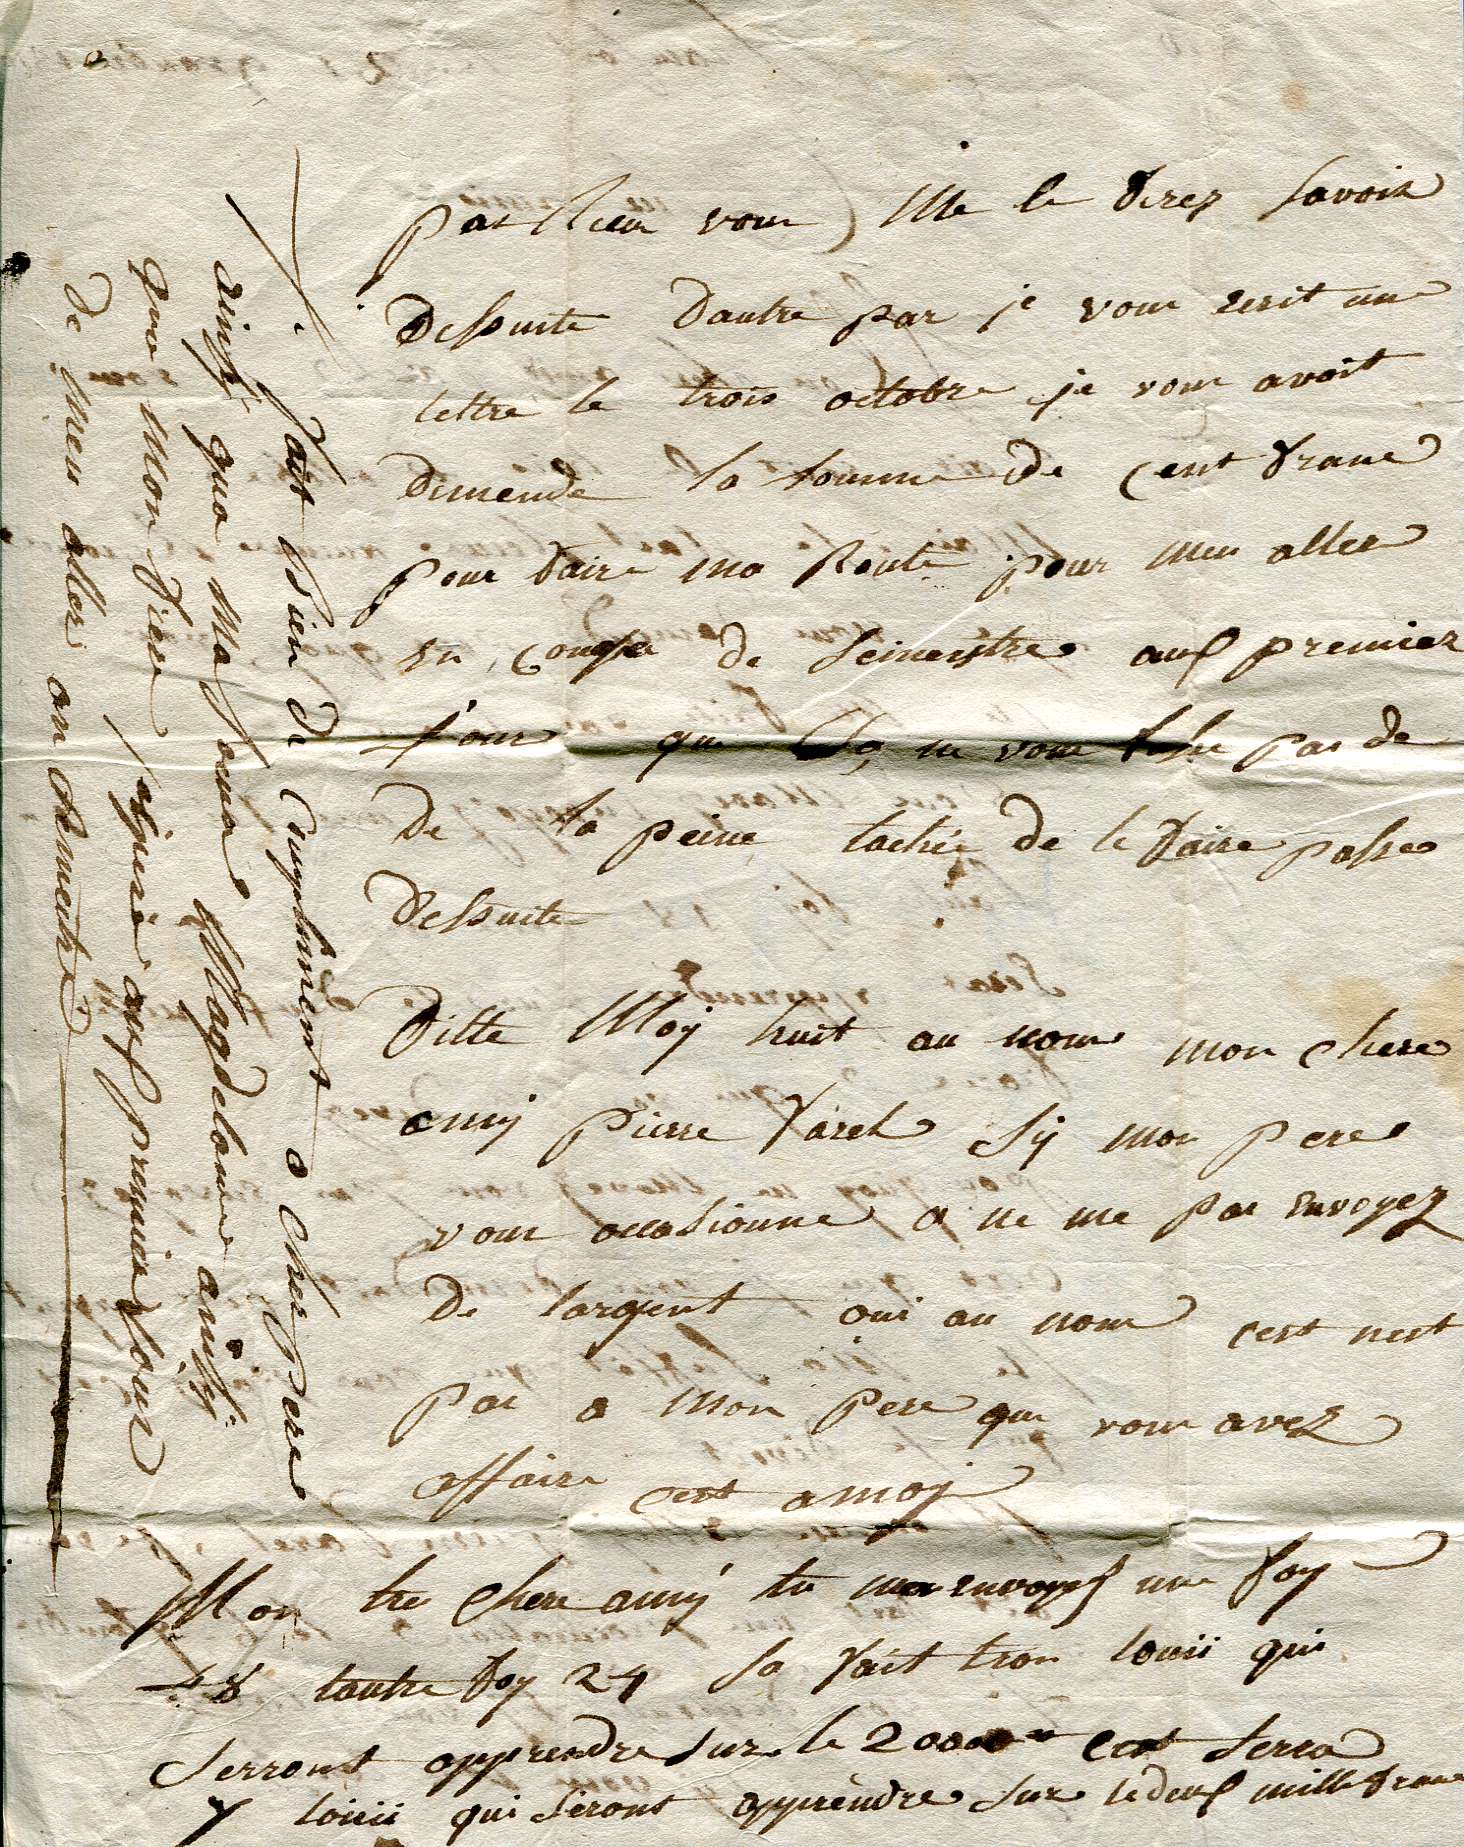 par lieu vous me le ferez savoir
dessuite dautre par je vous ecrit une
lettre le trois octobre je vous avoit
demende la somme de cent franc
pour faire ma Route pour men aller
en de semestre aux premier
jour que sa ne vous fasse pas de
de la peine tachée de le faire passe
dessuite
Ditte Moy huit au nom mon chere
amij pierre Varel sij mon pere
vous occasionne a ne me pas envoyez
de largent oui au nom cest nest
pas a Mon pere que vous avez
affaire cest amoij
Mon tre chere amij tu ma envoyes une foy
48 lautre foy 24 sa fait troi louii qui
Serront apprendre sur le cest serca
7 louii qui seront apprendre sur le deux mille franc
fait bien de Comphiment a cher pere
ainsij que Ma soeur Magdelaine ainsij
que Mon frere jaspere aux premier Jour
de Men aller an Semestre